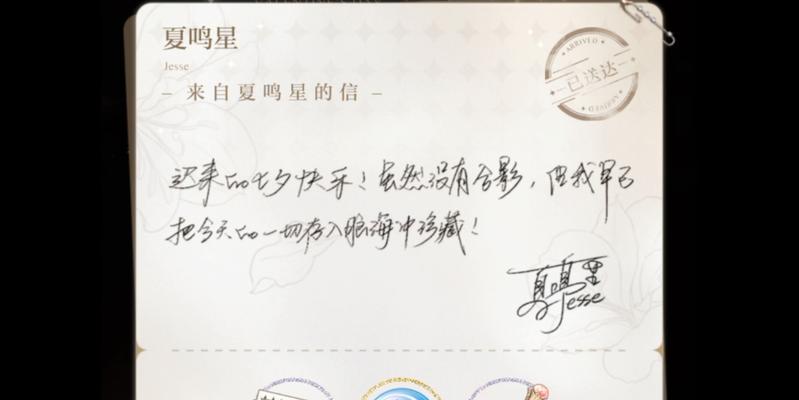 夏鸣星
Jesse
– 来自夏鸣星的信 –
ARRIVED
已送达
ARRIVED
迟来的七夕快乐！虽然没有合影，但我早已
把今天的一切存入脑海中珍藏！
夏鸣星
Jesse